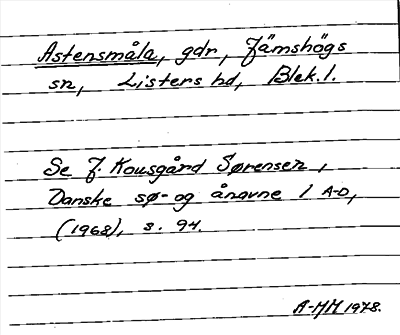 Astensmåla, gdr, Jämshögs
sn, Listers hd, Blek. l.
Se J. Kousgård Sørensen,
Danske sø- og ånavne 1 A-D,
(1968), s. 94.
A-MM 1978.